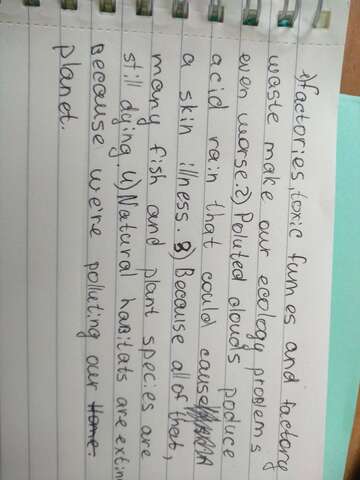 1) factories, toxic fumes and factory
waste make our ecology problems
even worse. 2) Poluted clouds poduce
acid rain that could cause
a skin illness. 3) Because all of that,
many fish and plant species are
still dying. 4) Natural habitats are extin
Because we're polluting our home.
planet.